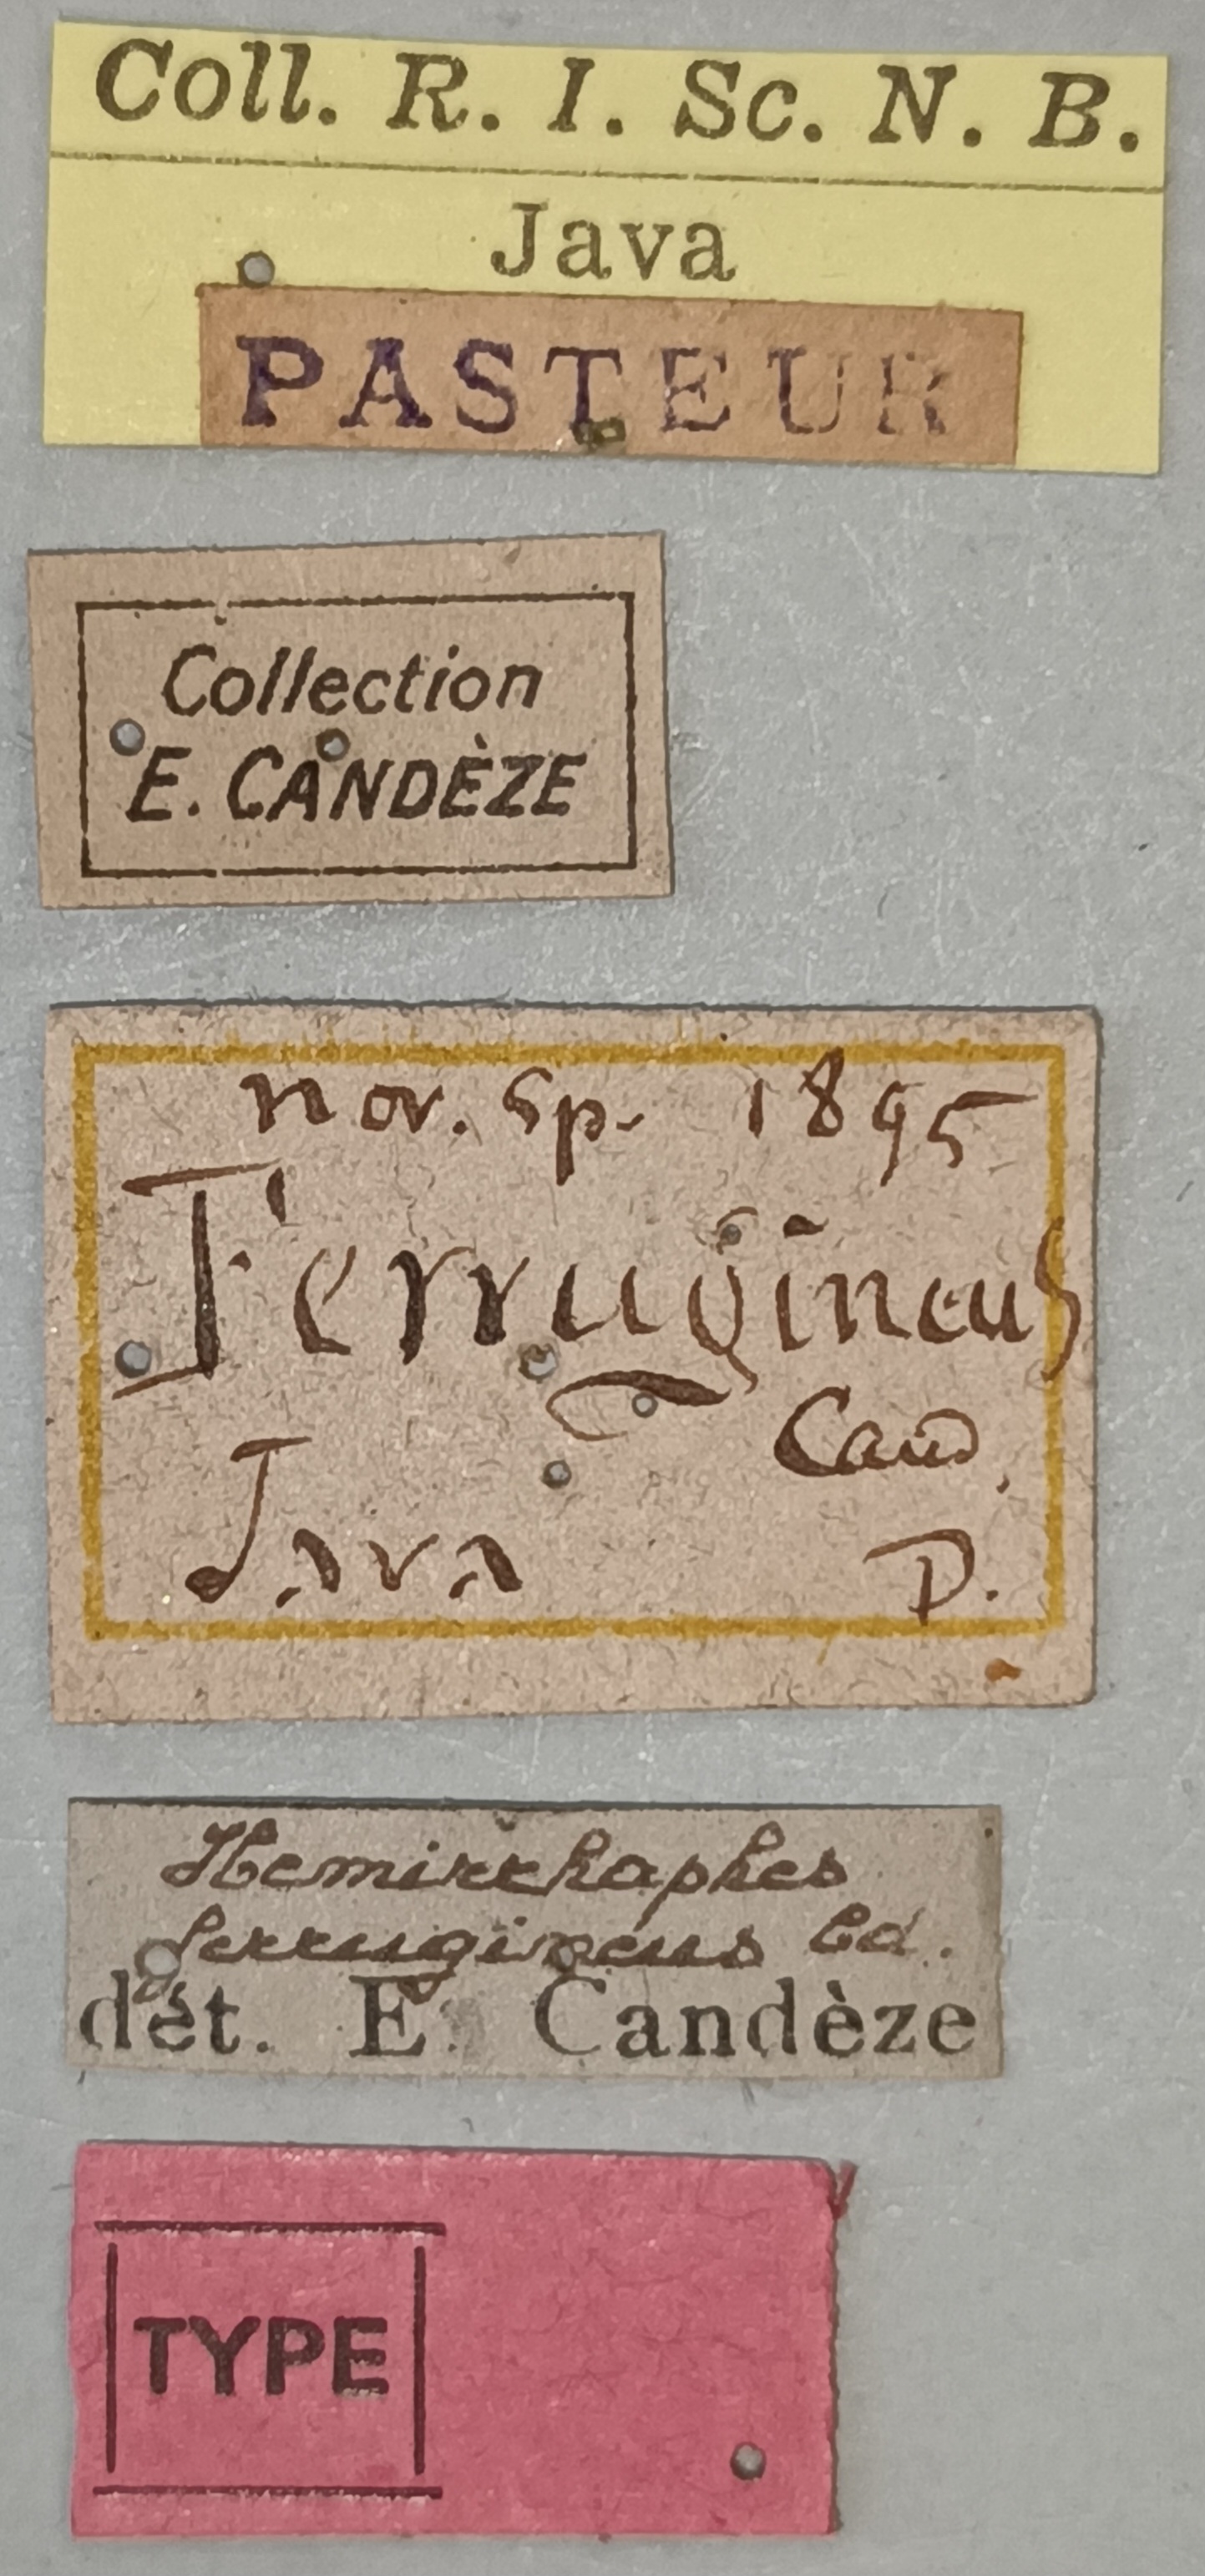 Coll. R. I. Sc. N. B.
Java
PASTEUR
Collection
E. CANDÈZE
nov. sp. 1895
Ferrugineus
Cand.
Java P.
Hemirrhaphes
ferrugineus Cd.
dét. E. Candèze
TYPE